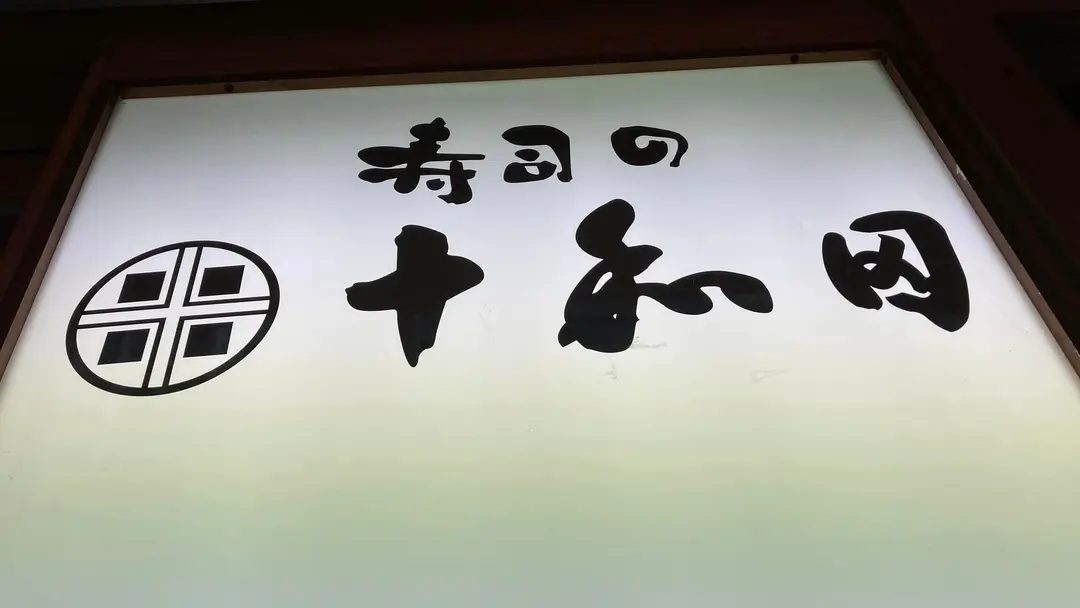 寿司の
十和田